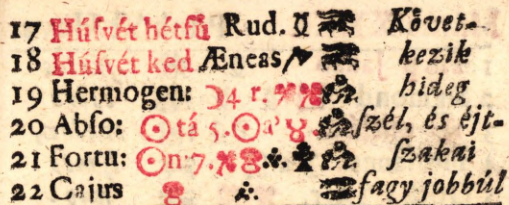 17 Húſvét hétfű Rud. Követ-
18 Húſvét ked Æneas kezik
19 Hermogen: ☽4 r. hideg
20 Abſo: ☉tá 5. ☉a' ♉ ſzél, és éjt-
21 Fortu: ☉n: 7. ſzakai
22 Cajus fagy jobbúl